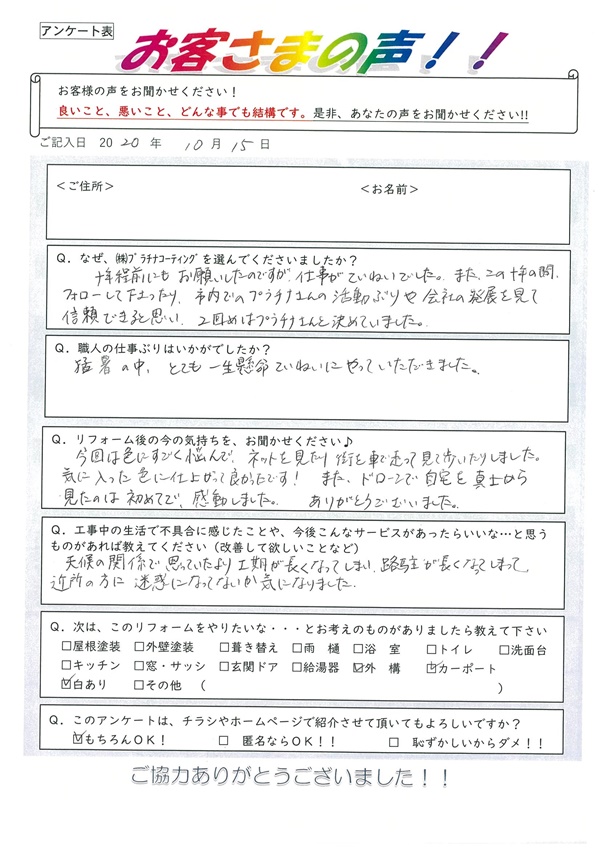 アンケート表
お客さまの声！！
お客様の声をお聞かせください！
良いこと、悪いこと、どんな事でも結構です。是非、あなたの声をお聞かせください!!
ご記入日 2020 年 10 月 15 日
＜ご住所＞ ＜お名前＞
Q．なぜ、㈱ﾌﾟﾗﾁﾅｺｰﾃｨﾝｸﾞを選んでくださいましたか？
十年程前にも お願いしたのですが、仕事がていねいでした。また、この十年の間、
フォローして下さったり、市内でのプラチナさんの活動ぶりや会社の発展を見て
信頼できると思い、2回めはプラチナさんと決めていました。
Q．職人の仕事ぶりはいかがでしたか？
猛暑の中、とても一生懸命ていねいにやっていただきました。
Q．リフォーム後の今の気持ちを、お聞かせください♪
今回は色にすごく悩んで、ネットを見たり 街を車で走って見て歩いたりしました。
気に入った色に仕上がって良かったです！ また、ドローンで自宅を真上から
見たのは初めてで、感動しました。 ありがとうございました。
Q．工事中の生活で不具合に感じたことや、今後こんなサービスがあったらいいな…と思う
ものがあれば教えてください（改善して欲しいことなど）
天候の関係で思っていたより工期が長くなってしまい、路駐が長くなってしまって
近所の方に迷惑になってないか気になりました。
Q．次は、このリフォームをやりたいな・・・とお考えのものがありましたら教えて下さい
□屋根塗装 □外壁塗装 □葺き替え □雨 樋 □浴 室 □トイレ □洗面台
□キッチン □窓・サッシ □玄関ドア □給湯器 ☑外 構 ☑カーポート
☑白あり □その他 （ ）
Q．このアンケートは、チラシやホームページで紹介させて頂いてもよろしいですか？
☑もちろんOK！ □ 匿名ならOK！！ □ 恥ずかしいからダメ！！
ご協力ありがとうございました！！